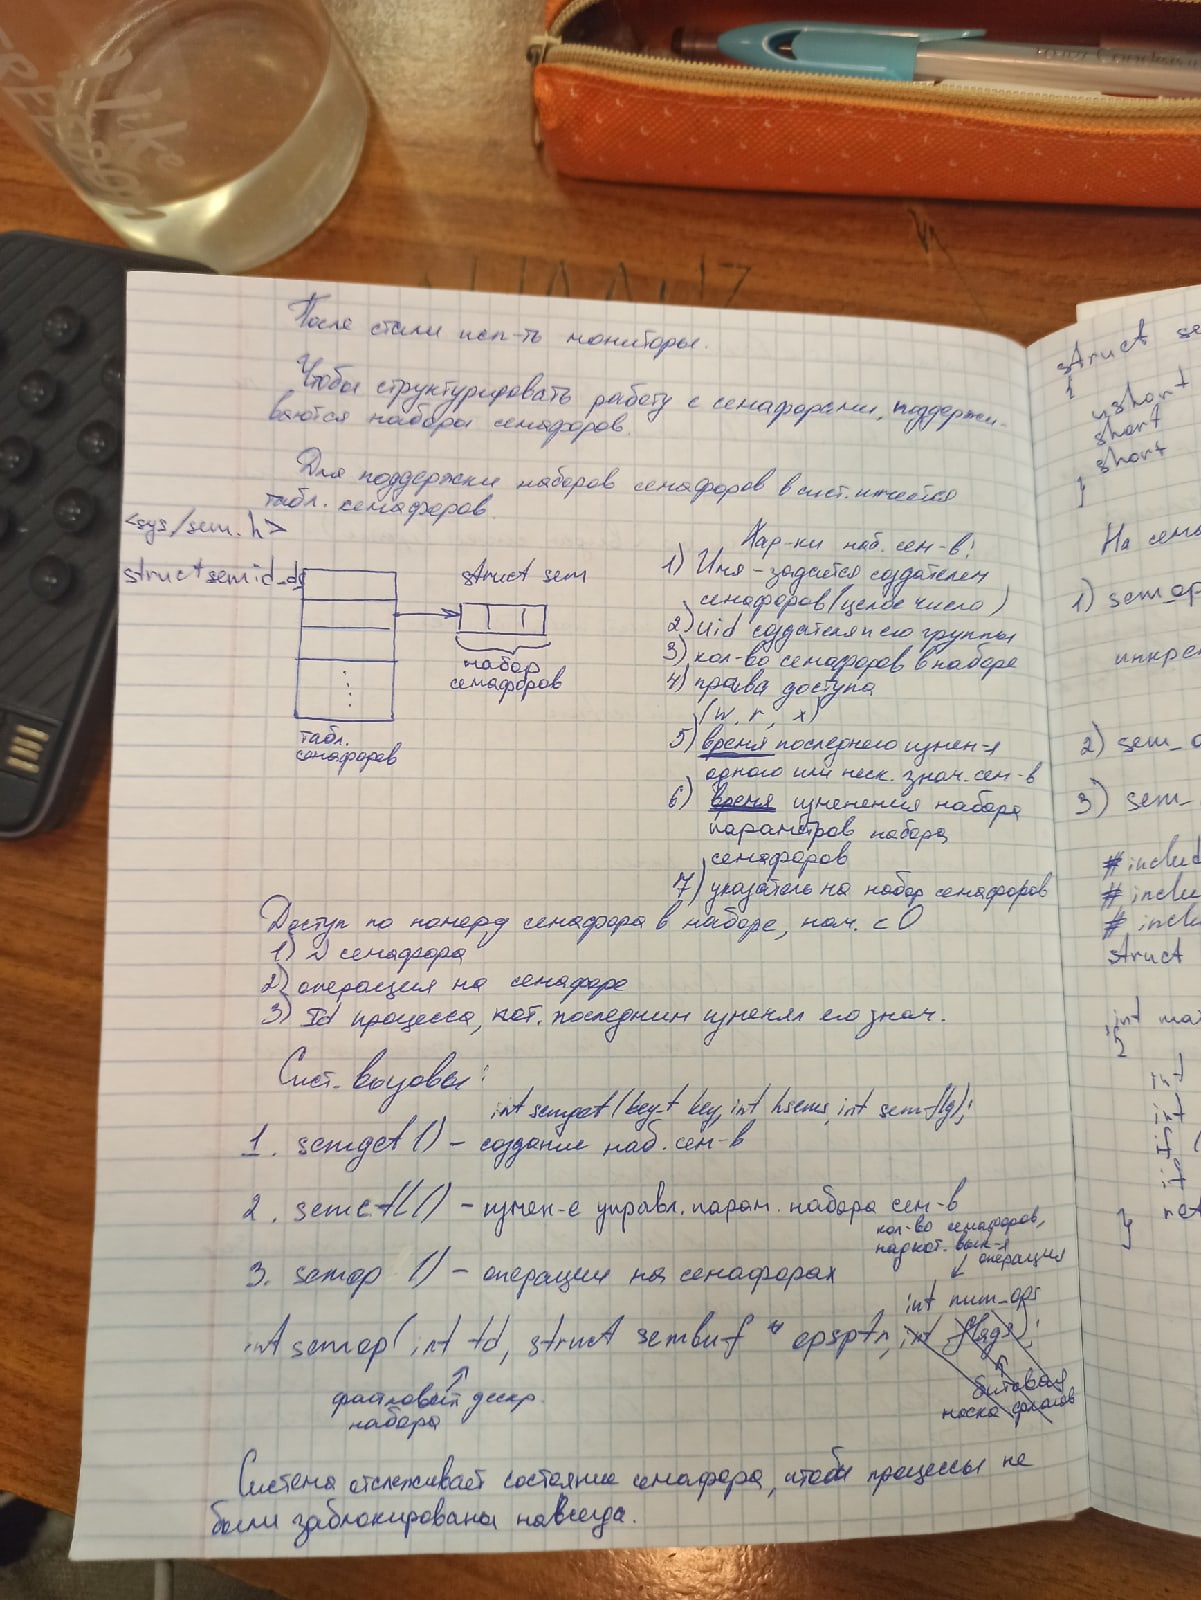 I like
После стали исп-ть мониторы.
Чтобы структурировать работу с семафорами, поддержи-
ваются наборы семафоров.
Для поддержки наборов семафоров в сист. имеется
табл. семафоров.
<sys/sem.h>
struct semid_ds
struct sem
набор
семафоров
табл.
семафоров
Хар-ки наб. сем-в:
1) Имя - задается создателем
семафоров (целое число)
2) uid создателя и его группы
3) кол-во семафоров в наборе
4) права доступа
(w, r, x)
5) время последнего измен-я
одного или неск. знач. сем-в
6) время изменения набора
параметров набора
семафоров
7) указатель на набор семафоров
Доступ по номеру семафора в наборе, нач. с 0
1) семафора
2) операция на семафоре
3) Id процесса, кот. последним изменял его знач.
Сист. вызовы:
int semget(key_t key, int nsems, int sem-flg);
1. semget() - создание наб. сем-в
2. semctl() - измен-е управл. парам. набора сем-в
кол-во семафоров,
над кот. вып-я
операция
3. semop () - операции на семафорах
int num_ops
int semop( int fd, struct sembuf * opsptr, int flags);
файловый дескр.
набора
битовая
маска флагов
Система отслеживает состояние семафора, чтобы процессы не
были заблокированы навсегда.
struct se
{
ushort
short
short
}
На сема
1) sem_op
инкре
2) sem_o
3) sem_
# includ
# inclu
# inclu
struct
int mai
{
int
ret
}